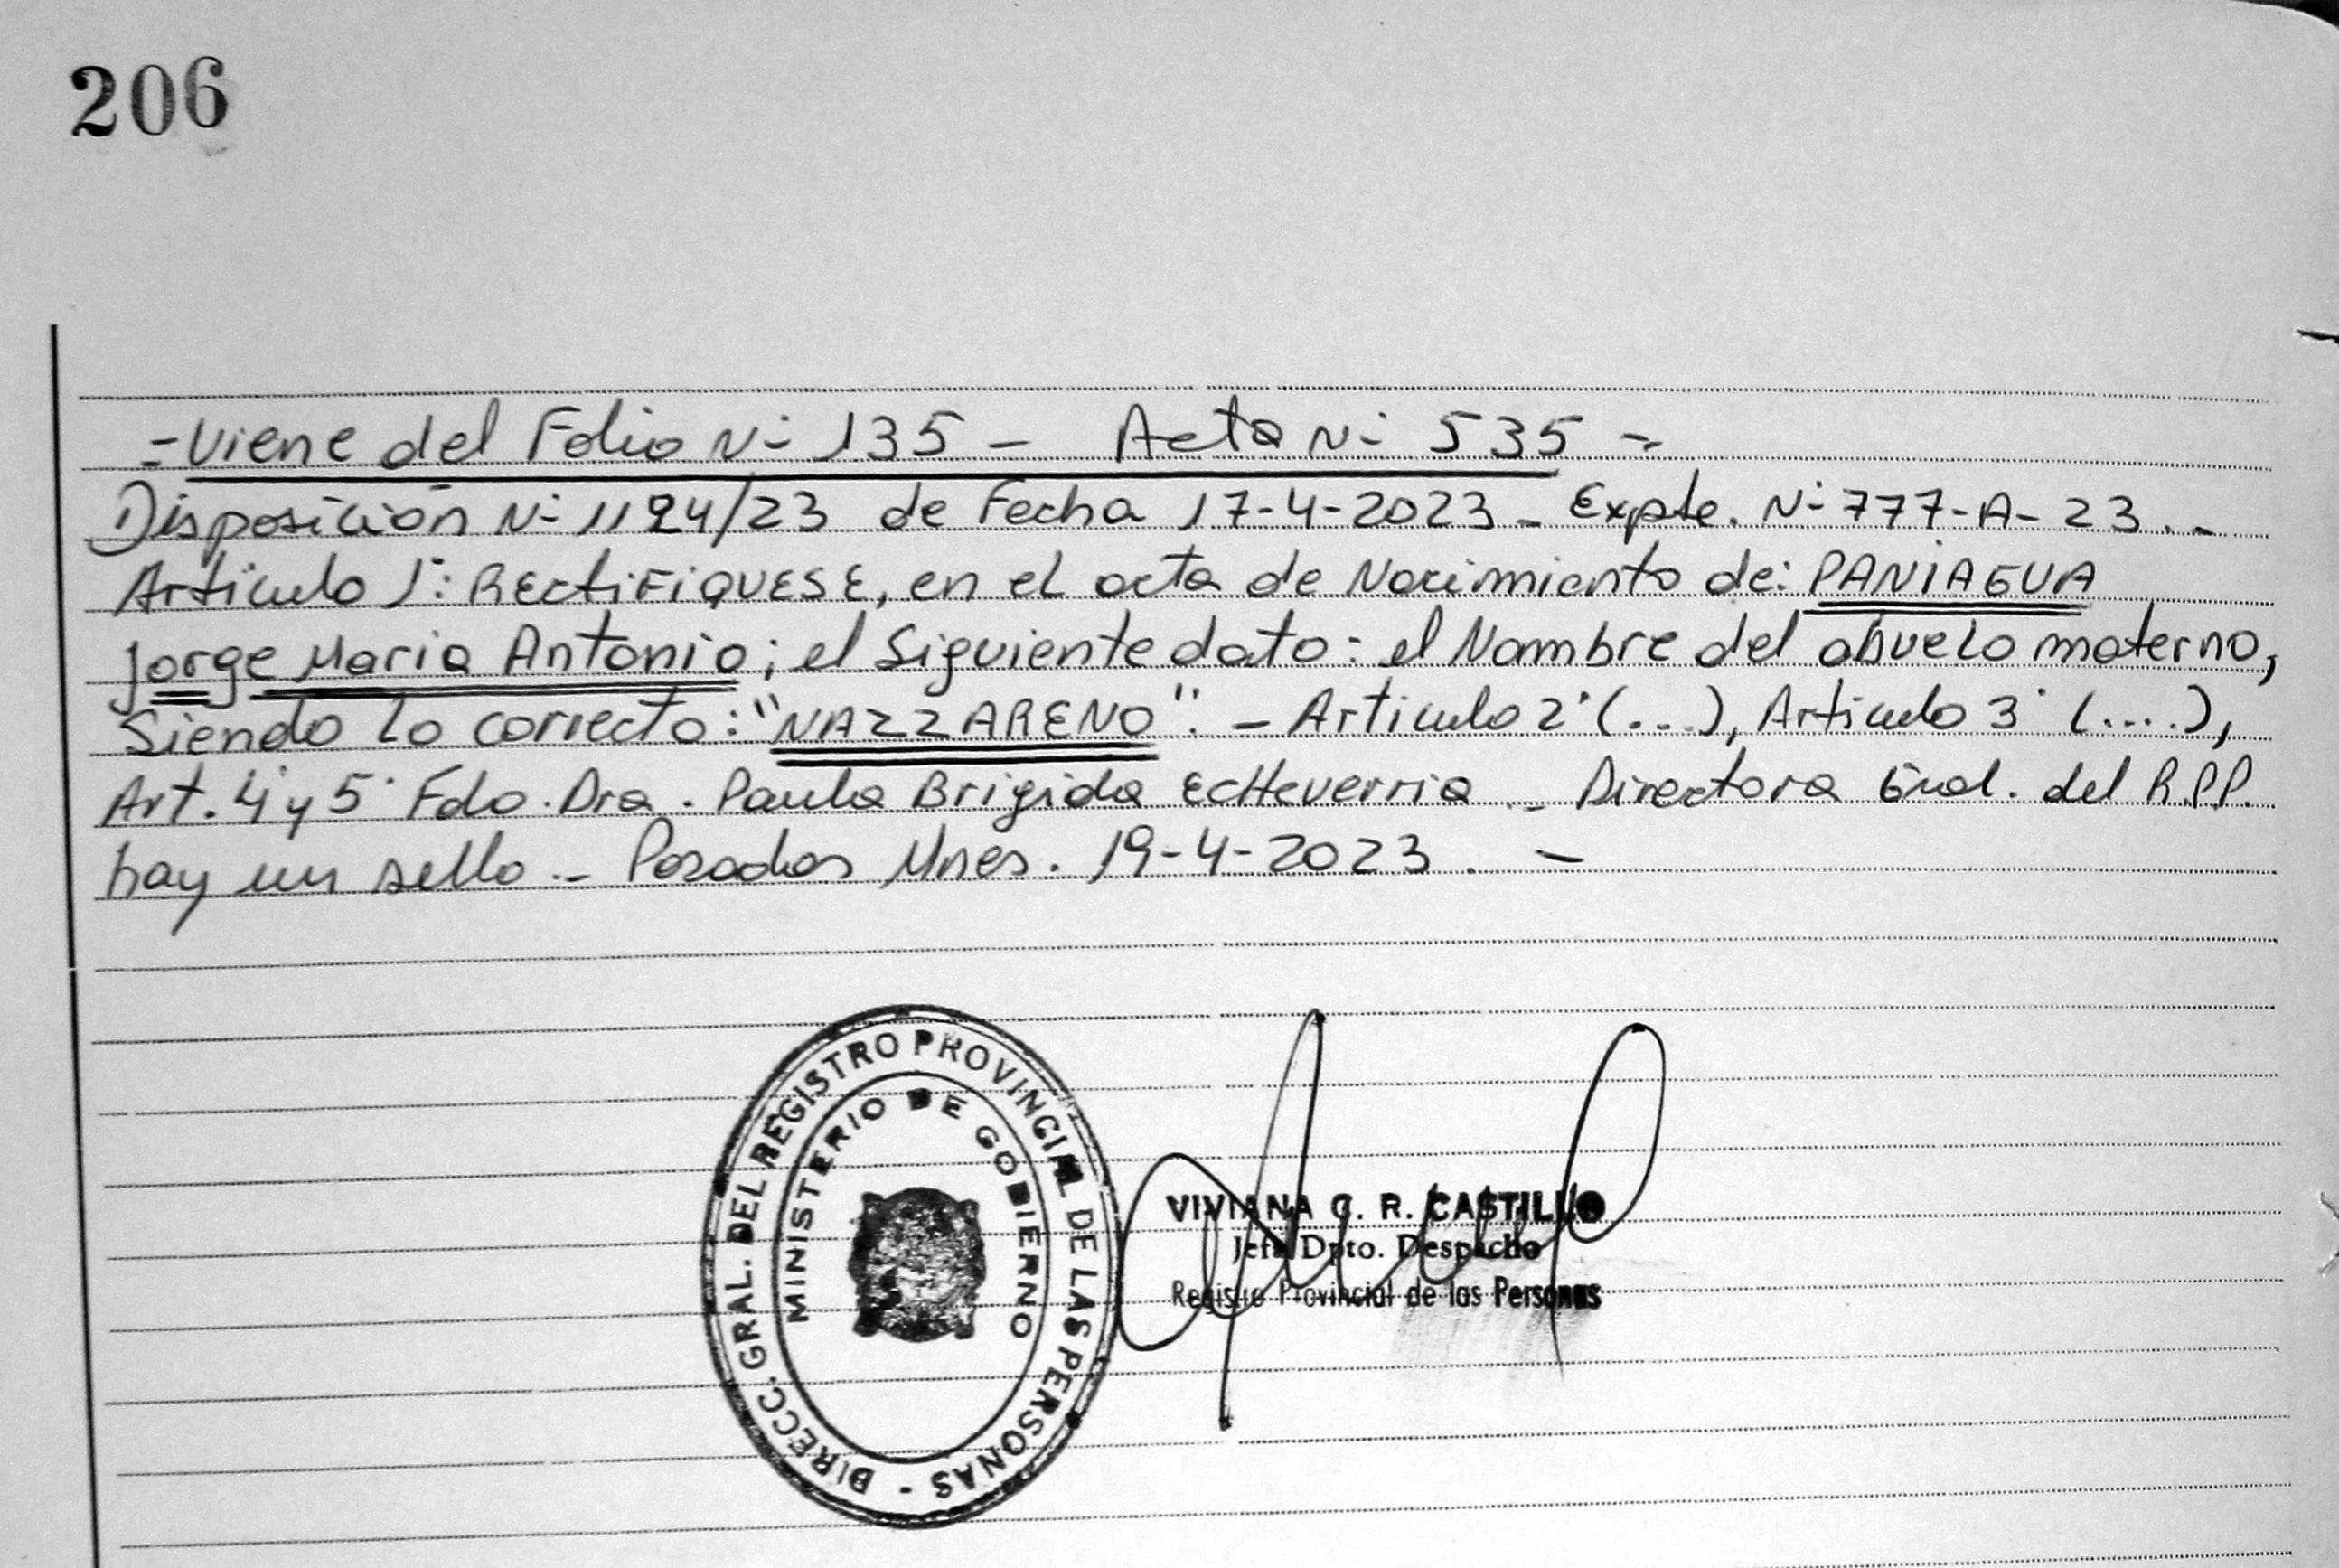 206
-Viene del Folio N° 135 - Acta N° 535 -
Disposición N° 1124/23 de Fecha 17-4-2023 - Expte. N° 777-A-23.-
Articulo 1°: RECTIFIQUESE, en el acta de Nacimiento de: PANIAGUA
Jorge Maria Antonio; el Siguiente dato: el Nombre del abuelo materno,
Siendo lo correcto: "NAZZARENO". - Articulo 2° (...), Articulo 3° (....),
Art. 4° y 5° Fdo. Dra. Paula Brigida Echeverria.- Directora Gral. del R.P.P.
hay un sello.- Posadas Mnes. 19-4-2023. -
DIRECC. GRAL. DEL REGISTRO PROVINCIAL DE LAS PERSONAS -
MINISTERIO DE GOBIERNO
VIVIANA C. R. CASTILLO
Jefa Dpto. Despacho
Registro Provincial de las Personas